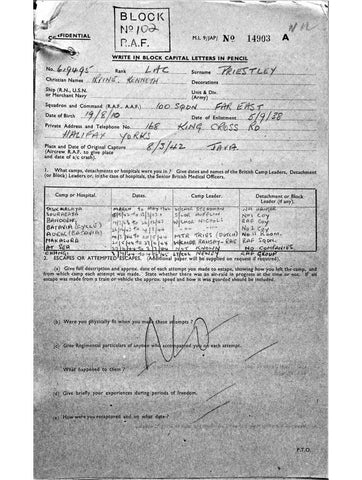 BLOCK
No 102
R.A.F.
CONFIDENTIAL
M.I. 9/JAP/ No 14903 A
WRITE IN BLOCK CAPITAL LETTERS IN PENCIL
No. 619495 Rank LAC Surname PRIESTLEY
Christian Names KENNETH
Ship (R.N., U.S.N. or Merchant Navy) Unit & Div. (Army)
Squadron and Command (R.A.F., A.A.F.) 100 SQDN FAR EAST
Date of Birth 19/8/10 Date of Enlistment 5/9/38
Private Address and Telephone No. 168 KING CROSS RD
HALIFAX YORKS
Place and Date of Original Capture 8/3/42 JAVA
(Aircrew R.A.F. to give place and date of a/c crash).
1. What camps, detachments or hospitals were you in? Give dates and names of the British Camp Leaders, Detachment (or Block) Leaders or, in the class of hospitals, the Senior British Medical Officers.
Camp or Hospital. Dates. Camp Leader. Detachment or Block Leader (if any).
SOURABAYA
BANDOENG
BATAVIA (CYCLE) W/CMDR NICHOLS RAF COY
ADEK (BATAVIA) MTR TRIES (DUTCH)
MAKASURA W/CMDR RAF SQDN.
AT SEA NO COMPANIES
CHANGI RAF GROUP
2. ESCAPES OR ATTEMPTED ESCAPES. (Additional paper will be supplied on request if required).
(a) Give full description and approx. date of each attempt you made to escape, showing how you left the camp, and from which camp each attempt was made. State whether there was an air-raid in progress at the time or not. If an escape was made from a train or vehicle the approx. speed and how it was guarded should be included.
(b) Were you physically fit when you made these attempts?
(c) Give Regimental particulars of anyone who accompanied you on each attempt.
What happened to them?
(d) Give briefly your experiences during periods of freedom.
(e) How were you recaptured and on what date?
P.T.O.